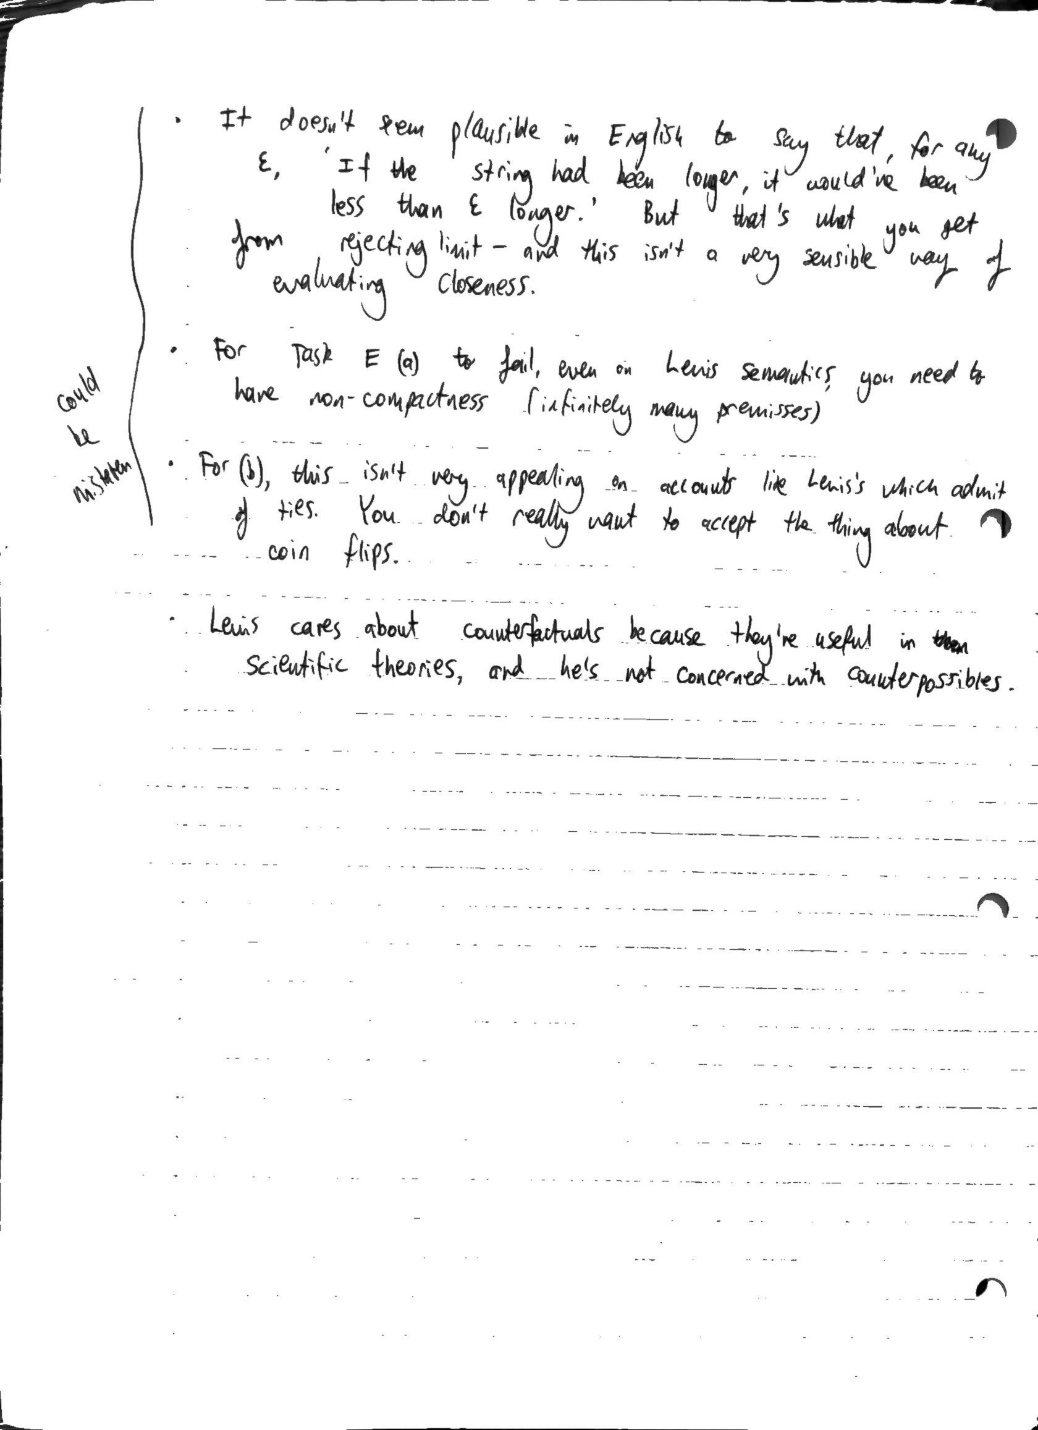 • It doesn't seem plausible in English to say that, for any
ε, 'If the string had been longer, it would've been
less than ε longer.' But that's what you get
from rejecting limit – and this isn't a very sensible way of
evaluating closeness.
• For Task E (a) to fail, even on Lewis semantics, you need to
have non-compactness (infinitely many premisses)
could
be
mistaken
• For (b), this isn't very appealing on accounts like Lewis's which admit
of ties. You don't really want to accept the thing about
coin flips.
• Lewis cares about counterfactuals because they're useful in
scientific theories, and he's not concerned with counterpossibles.